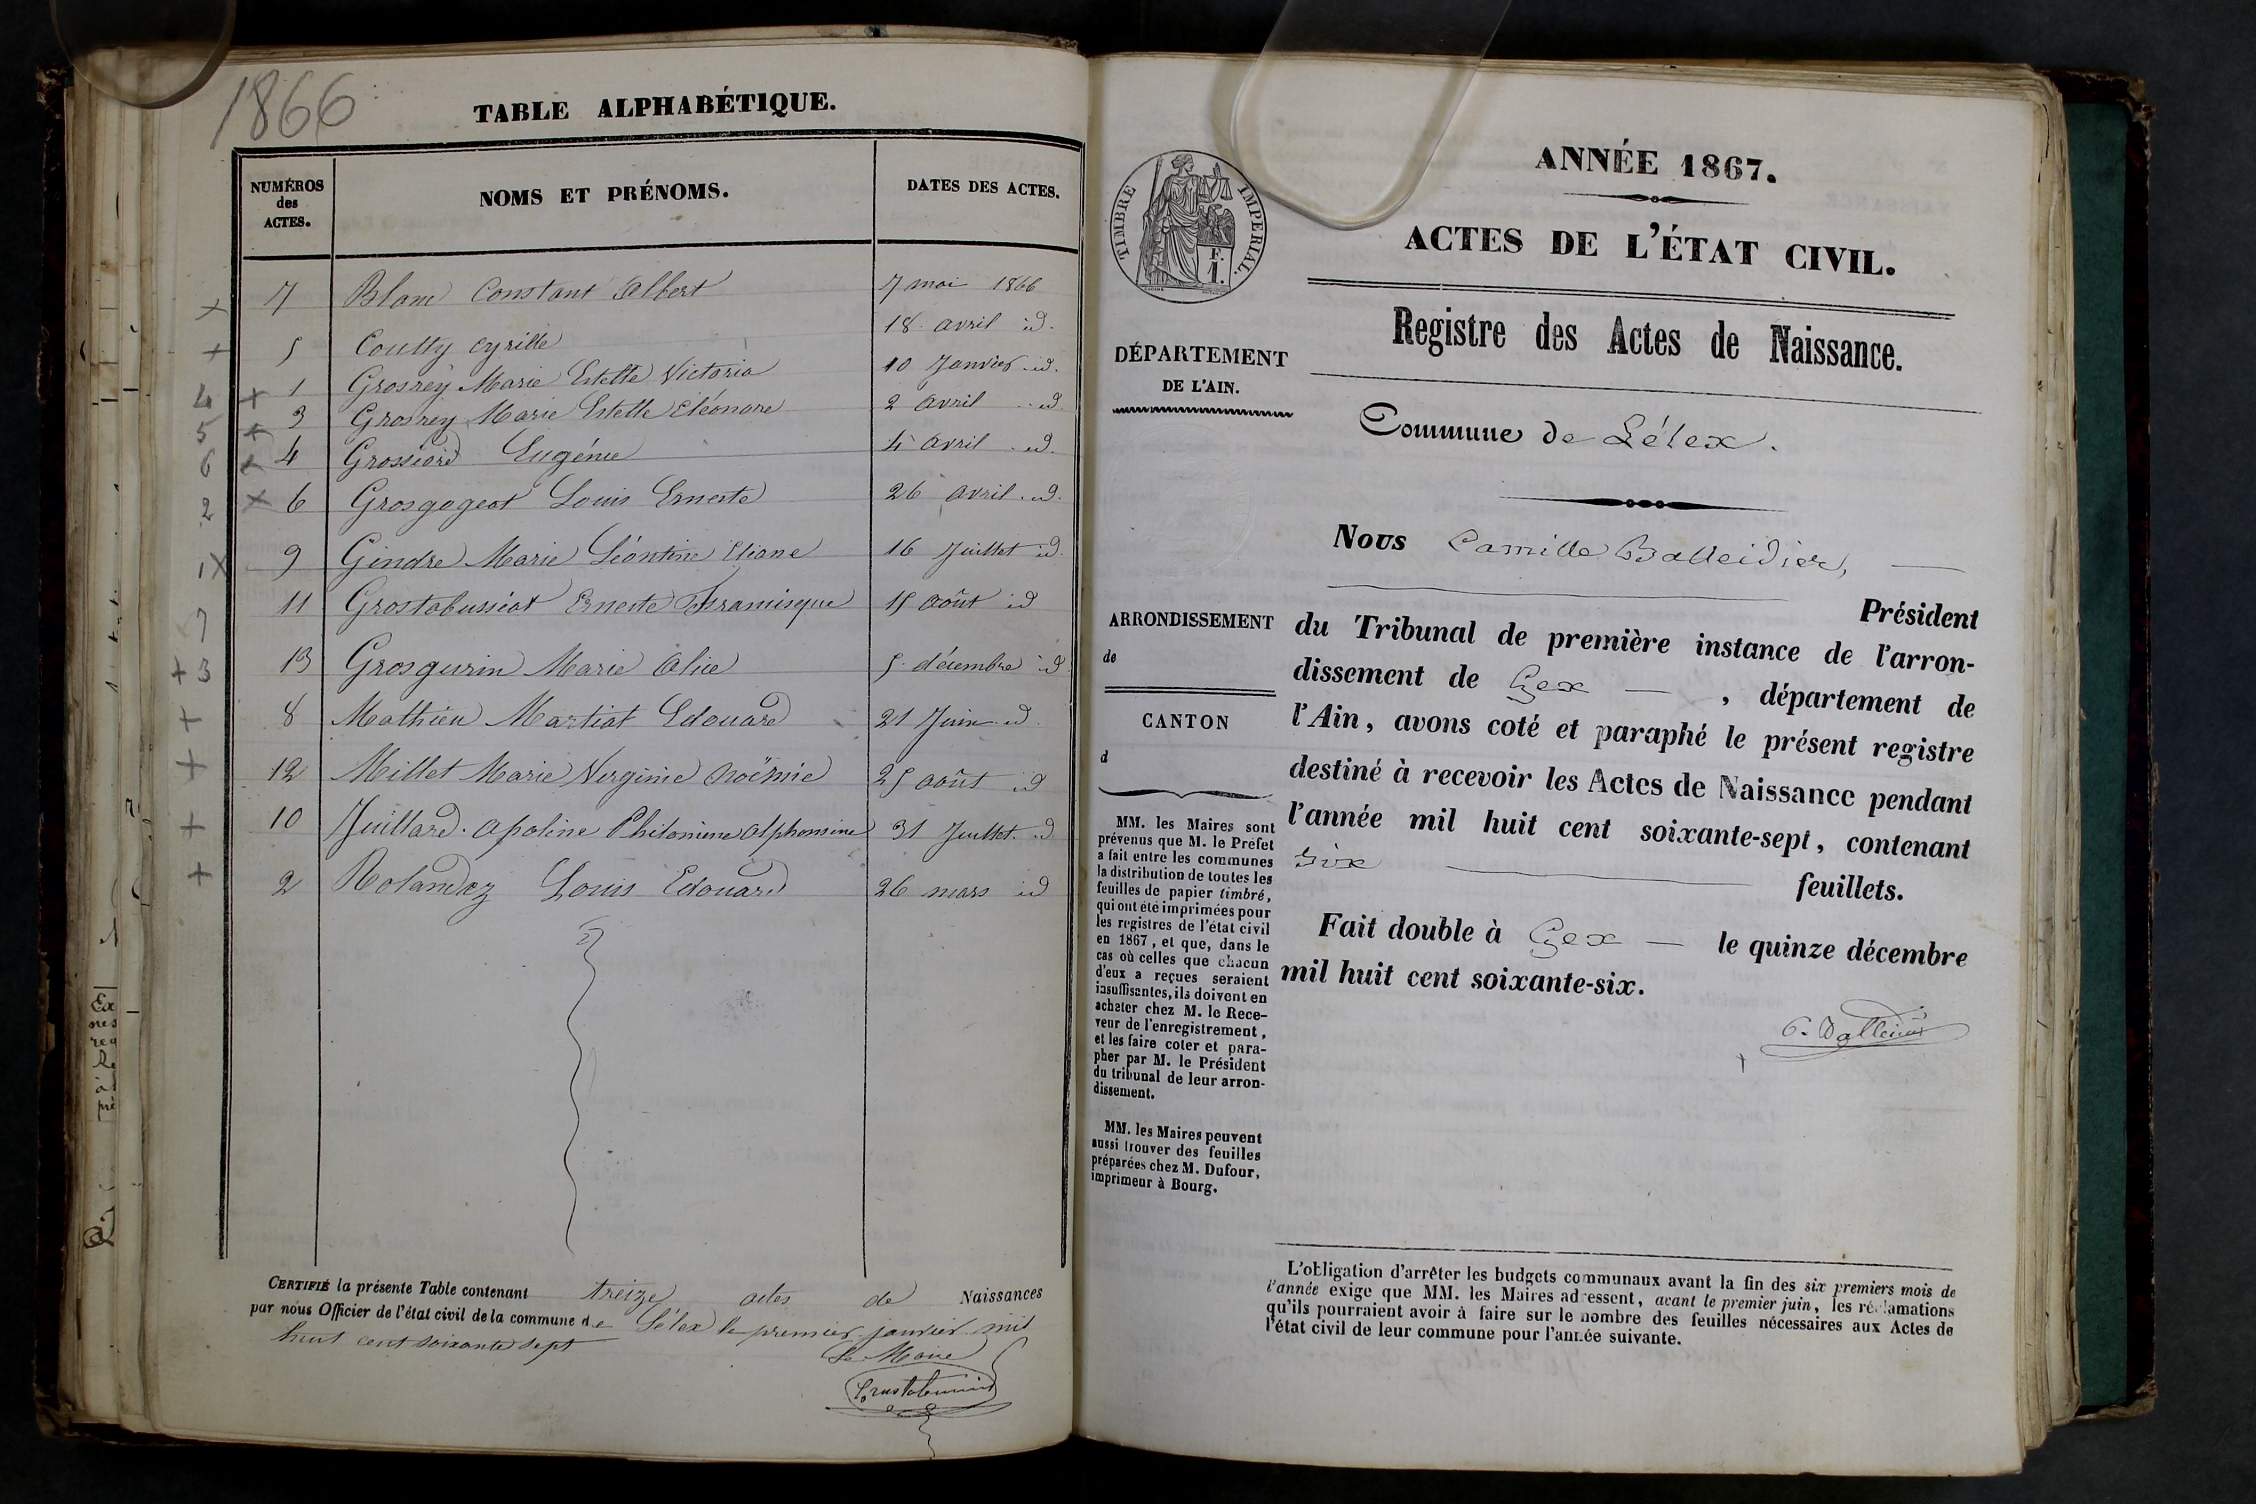 1866
TABLE ALPHABÉTIQUE.
NUMÉROS
des
ACTES.
NOMS ET PRÉNOMS.
DATES DES ACTES.
7 Blanc Constant Albert 7 mai 1866
5 Coutty Cyrille 18 avril id.
1 Grosrey Marie Estelle Victoria 10 Janvier id.
3 Grosrey Marie Estelle Eléonore 2 avril id
4 Grossiord Eugénie 4 avril id.
6 Grosgogeat Louis Erneste 26 avril id.
9 Gindre Marie Léontine Eliane 16 Juillet id.
11 Grostabussiat Erneste 15 août id
13 Grosgurin Marie Alice 5 décembre id
8 Mathieu Martial Edouard 21 Juin id.
12 Millet Marie Virginie Noëmie 25 août id
10 Juillard Apoline Philomene Alphonsine 31 Juillet id
2 Rolandez Louis Edouard 26 mars id
4
5
6
2
1
7
3
CERTIFIÉ la présente Table contenant treize actes de Naissances
par nous Officier de l'état civil de la commune de Lélex le premier janvier mil
huit cent soixante sept
Le Maire
TIMBRE IMPÉRIAL.
F.
1.
DÉPARTEMENT
DE L'AIN.
ARRONDISSEMENT
de
CANTON
d
MM. les Maires sont
prévenus que M. le Préfet
a fait entre les communes
la distribution de toutes les
feuilles de papier timbré,
qui ont été imprimées pour
les registres de l'état civil
en 1867, et que, dans le
cas où celles que chacun
d'eux a reçues seraient
insuffisantes, ils doivent en
acheter chez M. le Rece-
veur de l'enregistrement,
et les faire coter et para-
pher par M. le Président
du tribunal de leur arron-
dissement.
MM. les Maires peuvent
aussi trouver des feuilles
préparées chez M. Dufour,
imprimeur à Bourg.
ANNÉE 1867.
ACTES DE L'ÉTAT CIVIL.
Registre des Actes de Naissance.
Commune de Lélex.
Nous Camille Balleidier,
Président
du Tribunal de première instance de l'arron-
dissement de Gex, département de
l'Ain, avons coté et paraphé le présent registre
destiné à recevoir les Actes de Naissance pendant
l'année mil huit cent soixante-sept, contenant
six feuillets.
Fait double à Gex le quinze décembre
mil huit cent soixante-six.
C. Balleidier
L'obligation d'arrêter les budgets communaux avant la fin des six premiers mois de
l'année exige que MM. les Maires adressent, avant le premier juin, les réclamations
qu'ils pourraient avoir à faire sur le nombre des feuilles nécessaires aux Actes de
l'état civil de leur commune pour l'année suivante.